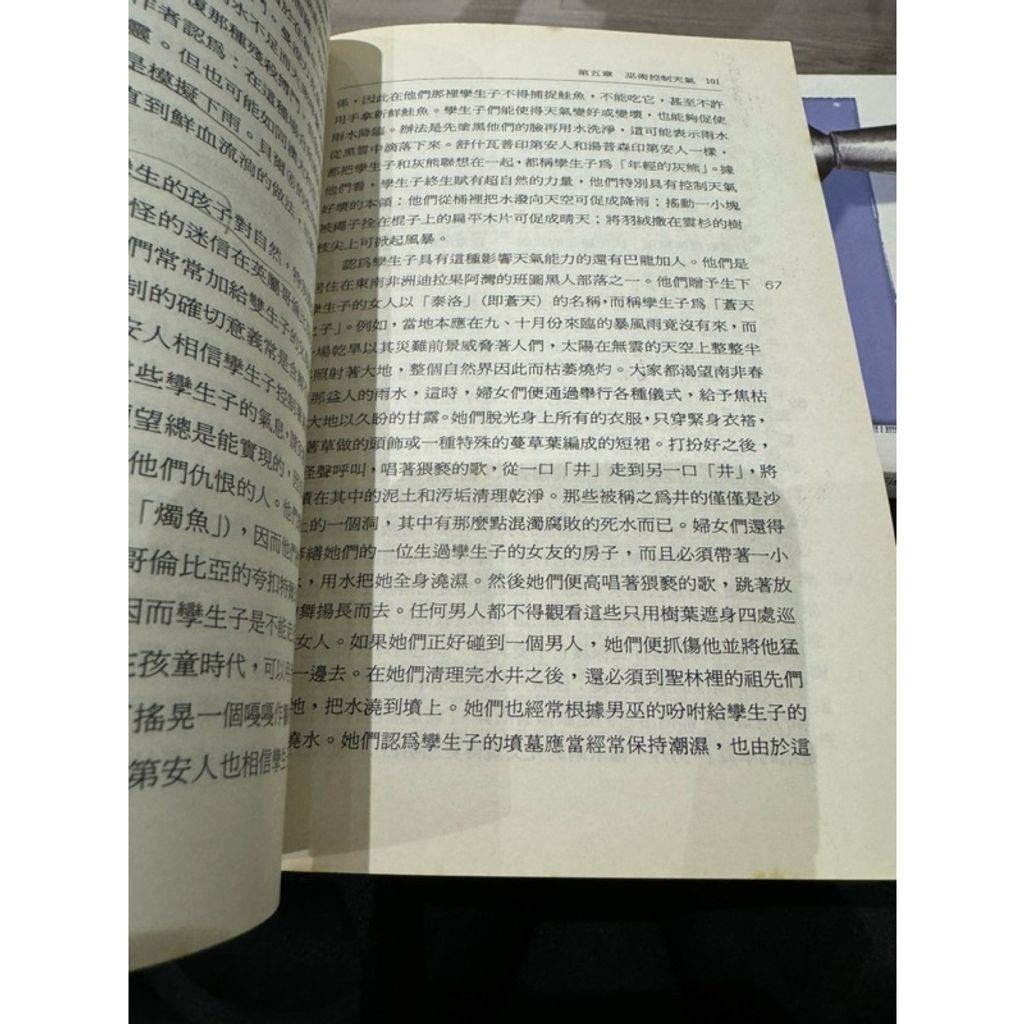 復那種殘殺搏鬥
作者認為：在這種場
靈。但也可能如同
是模擬下雨。貝爾
直到鮮血流淌的做法，
生的孩子對自然，
怪的迷信在英屬哥倫
們常常加給雙生子的父
制的確切意義常是含
安人相信孿生子控制
些孿生子的氣息，
望總是能實現的，
他們仇恨的人。他
「燭魚」），因而他們
哥倫比亞的夸扣特
因而孿生子是不能走
在孩童時代，可以用
搖晃一個嘎嘎作
第安人也相信孿生
第五章 巫術控制天氣 101
係，因此在他們那裡孿生子不得捕捉鮭魚，不能吃它，甚至不許
用手拿新鮮鮭魚。孿生子們能使得天氣變好或變壞，也能夠促使
雨水降臨。辦法是先塗黑他們的臉再用水洗淨，這可能表示雨水
從黑雲中滴落下來。舒什瓦普印第安人和湯普森印第安人一樣，
都把孿生子和灰熊聯想在一起，都稱孿生子為「年輕的灰熊」。據
他們看，孿生子終生賦有超自然的力量，他們特別具有控制天氣
好壞的本領：他們從桶裡把水潑向天空可促成降雨；搖動一小塊
被繩子拴在棍子上的扁平木片可促成晴天；將羽絨撒在雲杉的樹
枝尖上可掀起風暴。
認為孿生子具有這種影響天氣能力的還有巴龍加人。他們是
居住在東南非洲迪拉果阿灣的班圖黑人部落之一。他們贈予生下 67
孿生子的女人以「泰洛」（即蒼天）的名稱，而稱孿生子為「蒼天
之子」。例如，當地本應在九、十月份來臨的暴風雨竟沒有來，而
一場乾旱以其災難前景威脅著人們，太陽在無雲的天空上整整半
照射著大地，整個自然界因此而枯萎燒灼。大家都渴望南非春
那益人的雨水，這時，婦女們便通過舉行各種儀式，給予焦枯
大地以久盼的甘露。她們脫光身上所有的衣服，只穿緊身衣褡，
著草做的頭飾或一種特殊的蔓草葉編成的短裙。打扮好之後，
聲呼叫，唱著猥褻的歌，從一口「井」走到另一口「井」，將
在其中的泥土和汚垢清理乾淨。那些被稱之為井的僅僅是沙
上的一個洞，其中有那麼點混濁腐敗的死水而已。婦女們還得
繕她們的一位生過孿生子的女友的房子，而且必須帶著一小
，用水把她全身澆濕。然後她們便高唱著猥褻的歌，跳著放
舞揚長而去。任何男人都不得觀看這些只用樹葉遮身四處巡
女人。如果她們正好碰到一個男人，她們便抓傷他並將他猛
一邊去。在她們清理完水井之後，還必須到聖林裡的祖先們
地，把水澆到墳上。她們也經常根據男巫的吩咐給孿生子的
澆水。她們認為孿生子的墳墓應當經常保持潮濕，也由於這